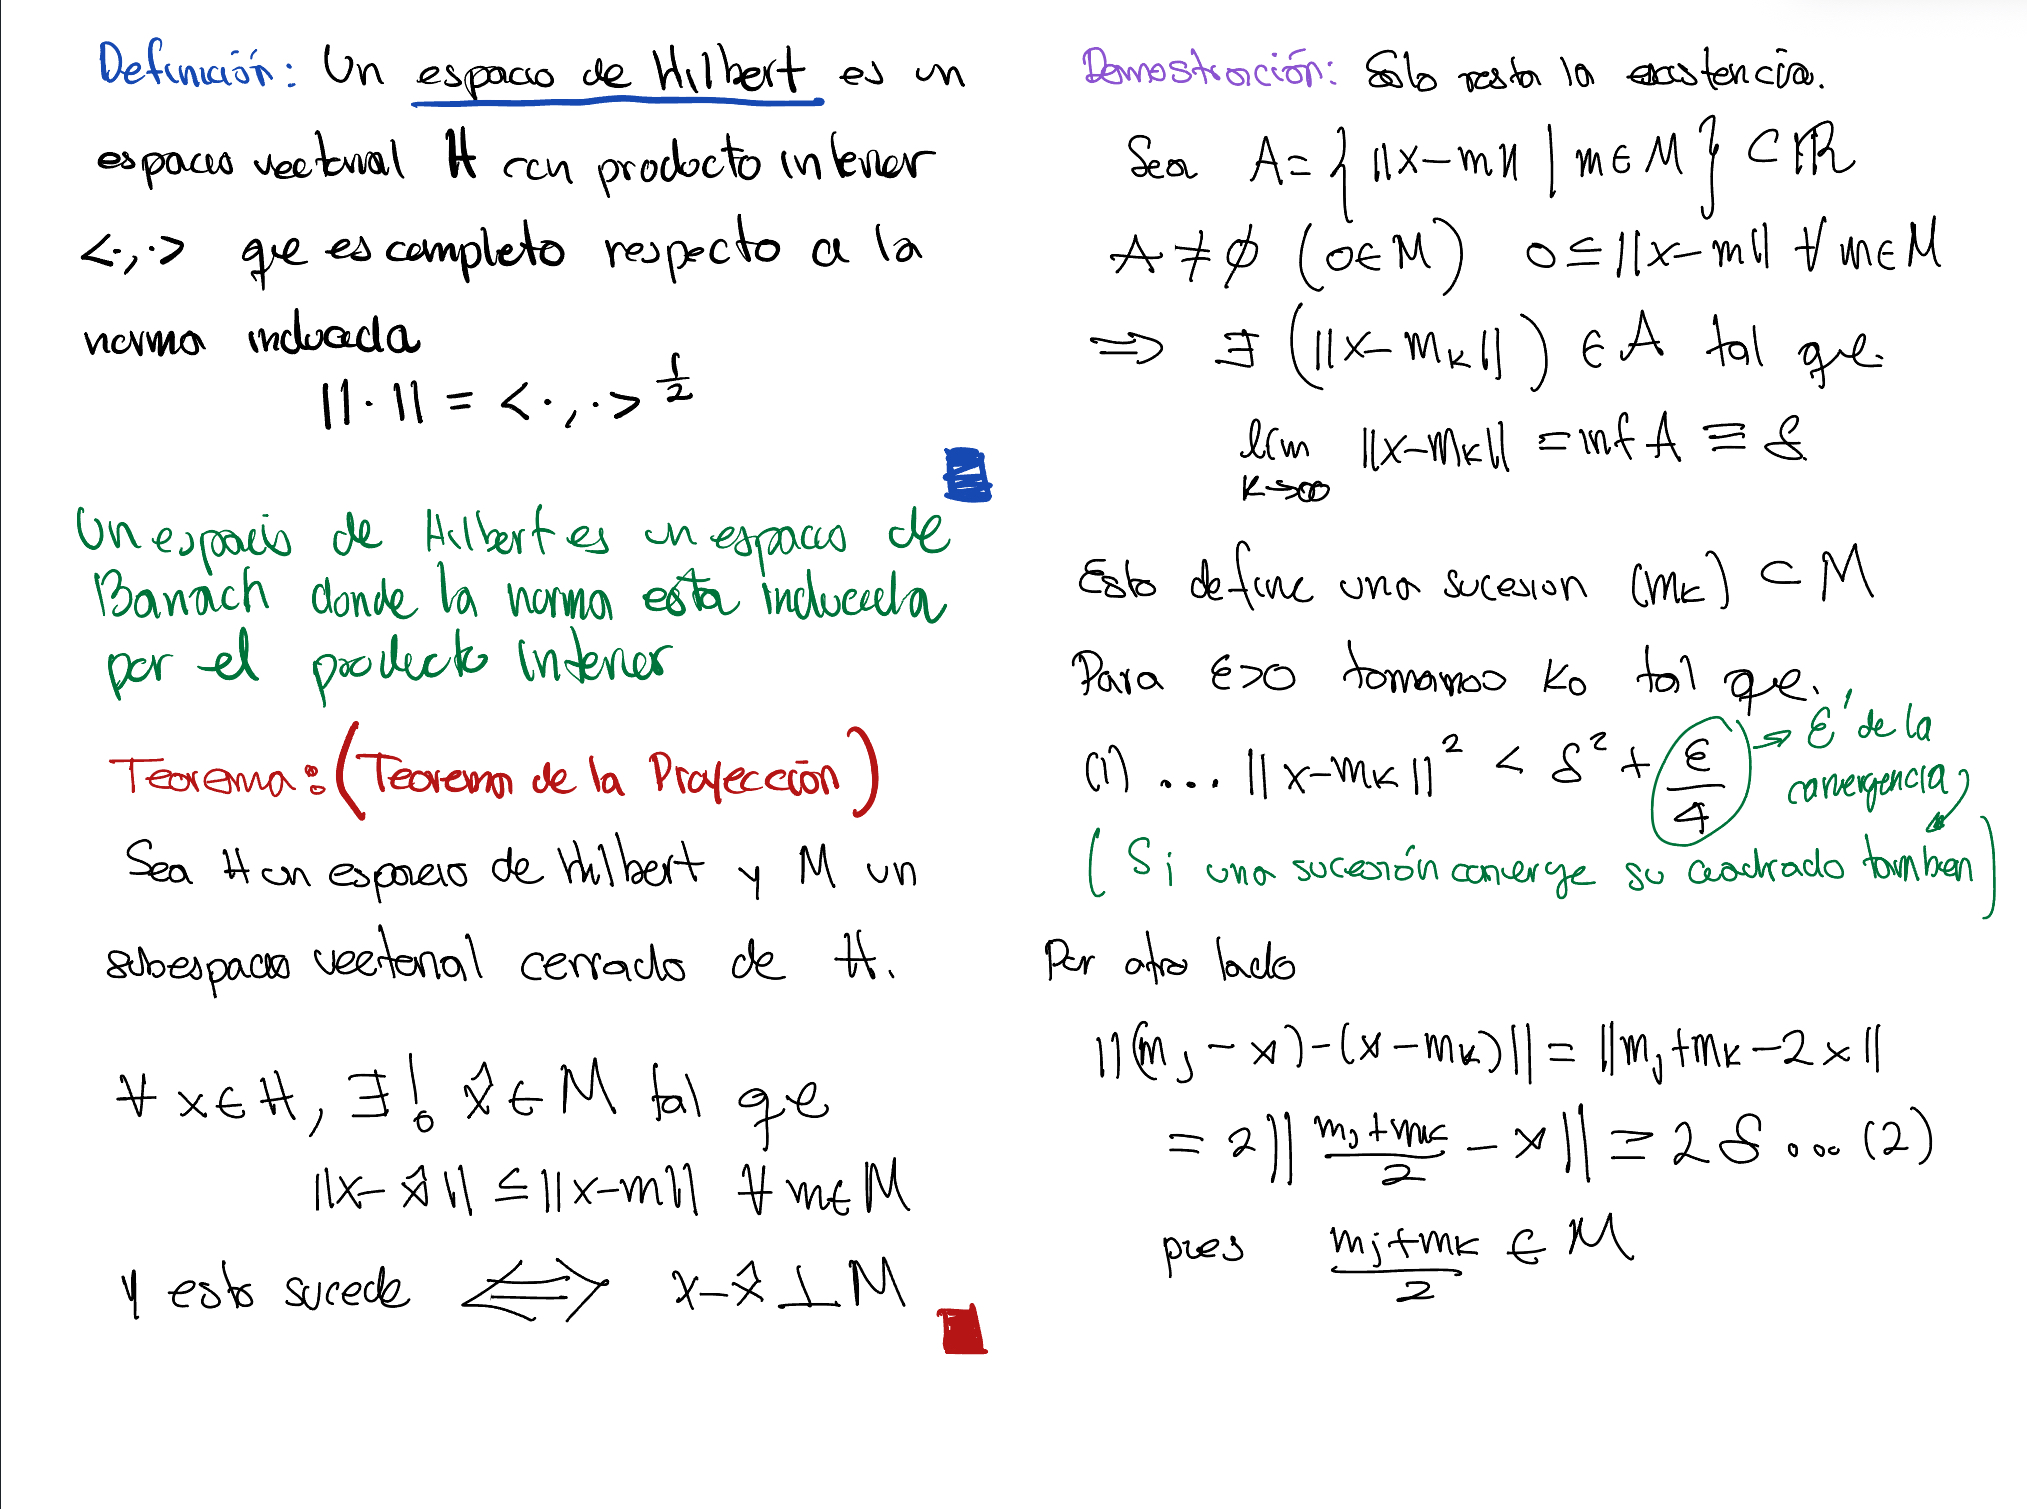 Definición: Un espacio de Hilbert es un
espacio vectorial H con producto interior
<·,·> que es completo respecto a la
norma inducida
||·|| = <·,·>^{1/2}
Un espacio de Hilbert es un espacio de
Banach donde la norma esta inducida
por el producto interior
Teorema: (Teorema de la Proyección)
Sea H un espacio de Hilbert y M un
subespacio vectorial cerrado de H.
∀ x∈H, ∃! x̂ ∈ M tal que
||x-x̂|| ≤ ||x-m|| ∀ m∈M
Y esto sucede ⟺ x-x̂ ⊥ M
Demostración: Sólo resta la existencia.
Sea A = { ||x-m|| | m∈M } ⊂ ℝ
A ≠ ∅ (0∈M) 0 ≤ ||x-m|| ∀ m∈M
⇒ ∃ (||x-m_k||) ∈ A tal que
lím_{k→∞} ||x-m_k|| = inf A ≡ δ
Esto define una sucesion (m_k) ⊂ M
Para ε>0 tomamos k_0 tal que.
(1) ... ||x-m_k||² < δ² + ε/4 → ε' de la
convergencia
(Si una sucesión converge su cuadrado tambien)
Por otro lado
||(m_j-x)-(x-m_k)|| = ||m_j+m_k-2x||
= 2|| (m_j+m_k)/2 - x || ≥ 2δ ... (2)
pues (m_j+m_k)/2 ∈ M